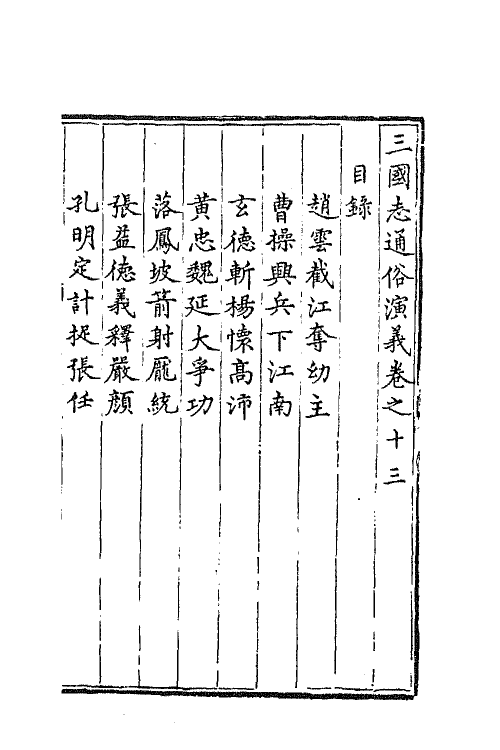 三國志通俗演義卷之十三
目録
趙雲截江奪幼主
曹操興兵下江南
玄德斬楊懷高沛
黃忠魏延大爭功
落鳳坡箭射龐統
張益德義釋嚴顔
孔明定計捉張任